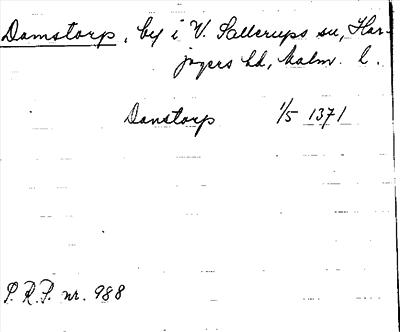 Damstorp, by i V. Sallerups sn, Har-
jagers hd, Malm. l.
Danstorp 1/5 1371
P. R. P. nr. 988